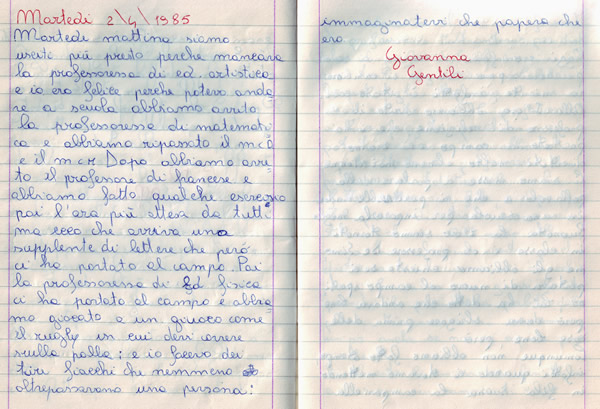 Martedì 2\4\1985
Martedì mattina siamo
usciti più presto perche mancava
la professoressa di ed. artistica
e io ero felice perche potevo anda
re a scuola abbiamo avuto
la professoressa di matemati
ca e abbiamo ripassato il m c D
e il m c m Dopo abbiamo avu
to il professore di francese e
abbiamo fatto qualche esercizio
poi l'ora più attesa da tutti
ma ecco che arriva una
supplente di lettere che però
ci ha portato al campo. Poi
la professoressa di Ed fisica
ci ha portato al campo e abbia
mo giocato a un giuoco come
il rugby in cui devi correre
sulla palla: e io facevo dei
tiri fiacchi che nemmeno
oltrepassarono una persona:
immaginatevi che papera che
ero.
Giovanna
Gentili